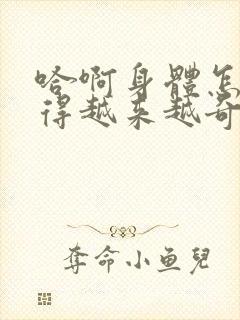 哈啊身體怎
得越来越奇
夺命小鱼兒